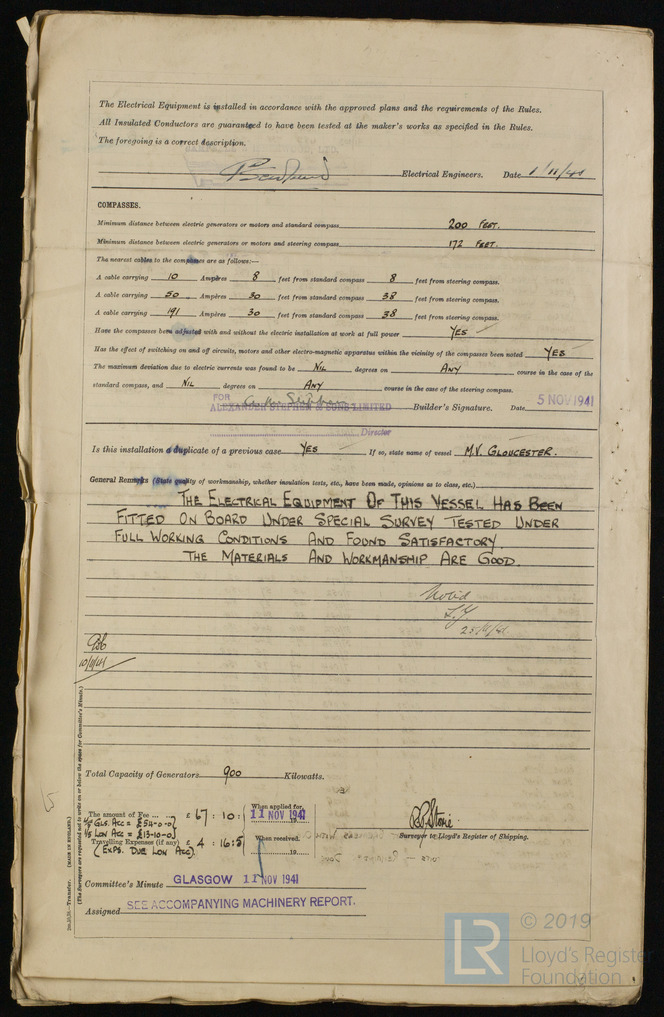 The Electrical Equipment is installed in accordance with the approved plans and the requirements of the Rules.
All Insulated Conductors are guaranteed to have been tested at the maker's works as specified in the Rules.
The foregoing is a correct description.
Electrical Engineers. Date 1/11/41
COMPASSES.
Minimum distance between electric generators or motors and standard compass 200 FEET.
Minimum distance between electric generators or motors and steering compass 172 FEET.
The nearest cables to the compasses are as follows:—
A cable carrying 10 Ampères 8 feet from standard compass 8 feet from steering compass.
A cable carrying 50 Ampères 30 feet from standard compass 38 feet from steering compass.
A cable carrying 191 Ampères 30 feet from standard compass 38 feet from steering compass.
Have the compasses been adjusted with and without the electric installation at work at full power YES
Has the effect of switching on and off circuits, motors and other electro-magnetic apparatus within the vicinity of the compasses been noted YES
The maximum deviation due to electric currents was found to be NIL degrees on ANY course in the case of the
standard compass, and NIL degrees on ANY course in the case of the steering compass.
FOR
ALEXANDER STEPHEN & SONS LIMITED Builder's Signature. Date 5 NOV 1941
Director
Is this installation a duplicate of a previous case YES If so, state name of vessel M.V. GLOUCESTER.
General Remarks (State quality of workmanship, whether insulation tests, etc., have been made, opinions as to class, etc.)
THE ELECTRICAL EQUIPMENT OF THIS VESSEL HAS BEEN
FITTED ON BOARD UNDER SPECIAL SURVEY TESTED UNDER
FULL WORKING CONDITIONS AND FOUND SATISFACTORY.
THE MATERIALS AND WORKMANSHIP ARE GOOD.
Noted
25/11/41
10/11/41
Total Capacity of Generators 900 Kilowatts.
The amount of Fee ... £ 67 : 10 : When applied for, 11 NOV 1941
4/5 GLS. ACC = £54-0-0
1/5 LON ACC = £13-10-0
Travelling Expenses (if any) £ 4 : 16 : 5 When received, 19
(EXPS. DUE LON ACC).
Surveyor to Lloyd's Register of Shipping.
Committee's Minute GLASGOW 11 NOV 1941
Assigned SEE ACCOMPANYING MACHINERY REPORT.
(The Surveyors are requested not to write on or below the space for Committee's Minute.)
Transfer. (MADE IN ENGLAND.)
LR
© 2019
Lloyd's Register
Foundation